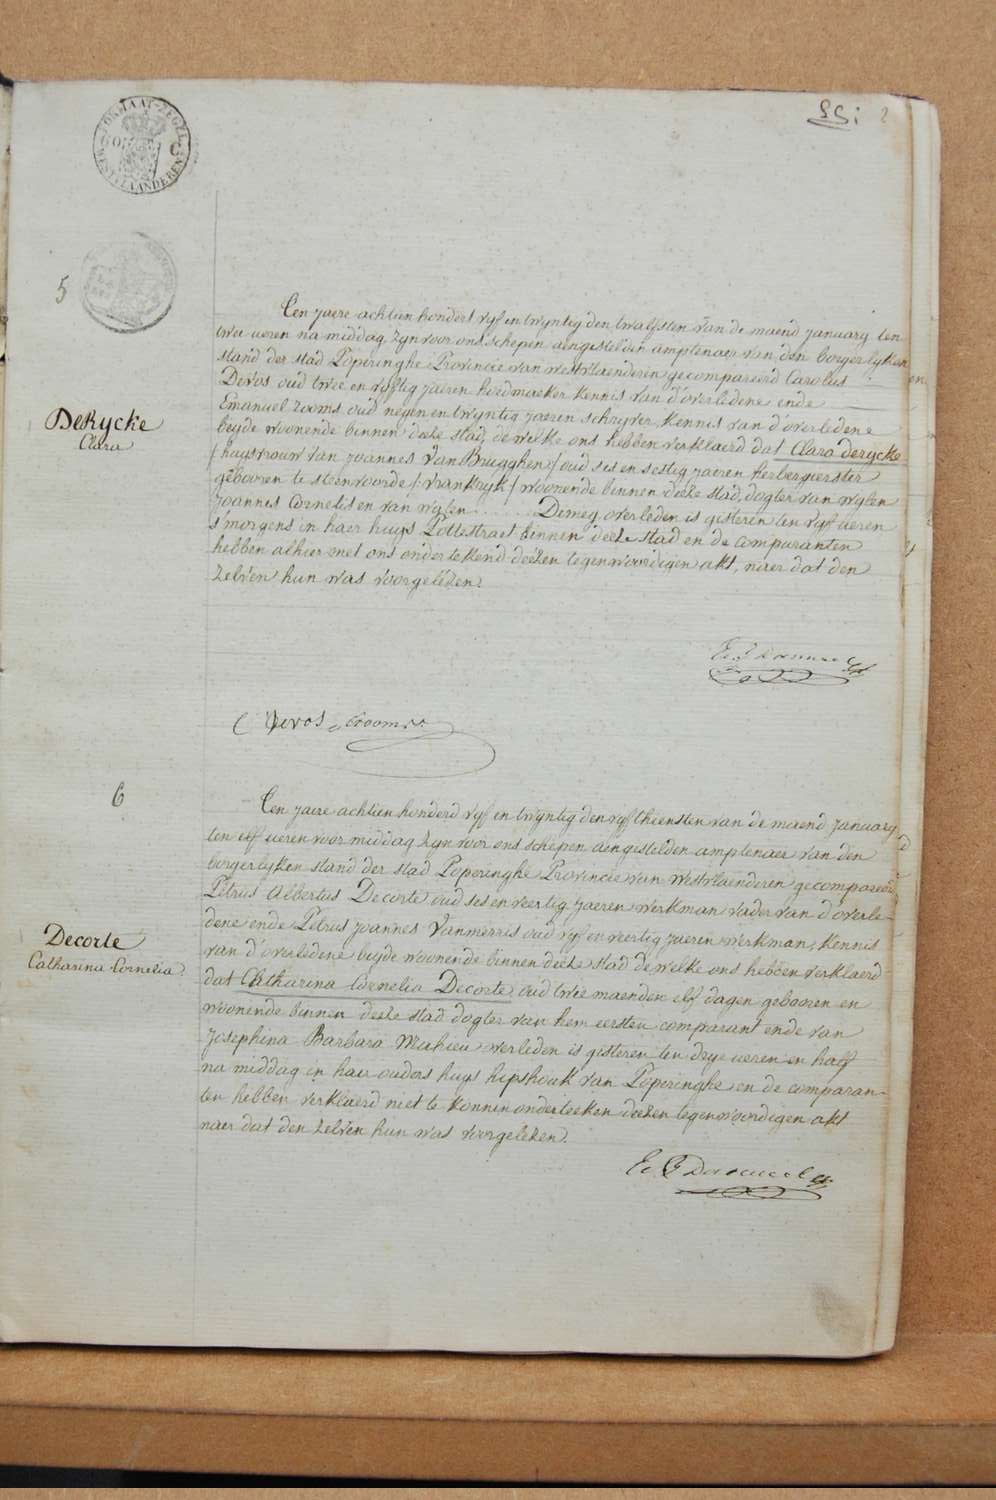 FORMAAT-ZEGEL
WEST-VLAANDEREN
SS: 2
5
DeRycke
Clara
Een jaere achtien hondert vyf en twyntig den twalfsten van de maend january ten
twee ueren na middag, zyn voor ons schepen aengestelden amptenaer van den borgerlyken
stand der stad Poperinghe Provincie van westvlaenderen gecompareerd Carolus
Devos oud twee en vyftig jaeren hoedmaeker kennis van d'overledene ende
Emanuel Zooms oud negen en twyntig jaeren schryver kennis van d'overledene
beyde woonende binnen deese stad, de welke ons hebben verklaerd dat Clara derycke
(huysvrouw van joannes VanBrugghen) oud ses en sestig jaeren herbergierster
gebooren te steenvoorde (vrankryk) woonende binnen deese stad, dogter van wylen
joannes Cornelis en van wylen ...... Demey, overleden is gisteren ten vyf ueren
s'morgens in haer huys Pottestraet binnen deese stad en de comparanten
hebben alhier met ons onderteekend deesen tegenwoordigen akt, naer dat den
zelven hun was voorgelesen.
C Devos
6
Een jaere achtien honderd vyf en twyntig den vyfthiensten van de maend january
ten elf ueren voor middag zyn voor ons schepen aengestelden amptenaer van den
borgerlyken stand der stad Poperinghe Provincie van westvlaenderen gecompareerd
Petrus Albertus Decorte oud ses en veertig jaeren werkman vader van d'overle-
dene ende Petrus joannes Vanmerris oud vyf en veertig jaeren werkman, kennis
van d'overledene beyde woonende binnen deese stad de welke ons hebben verklaerd
Decorte
Catharina Cornelia
dat Chatharina Cornelia Decorte, oud twee maenden elf dagen gebooren en
woonende binnen deese stad dogter van hem eersten comparant ende van
Josephina Barbara Mahieu verleden is gisteren ten drye ueren en half
na middag in haer ouders huys hipshoek van Poperinghe en de comparan-
ten hebben verklaerd niet te konnen onderteeken deesen tegenwoordigen akt
naer dat den zelven hun was voorgelesen.